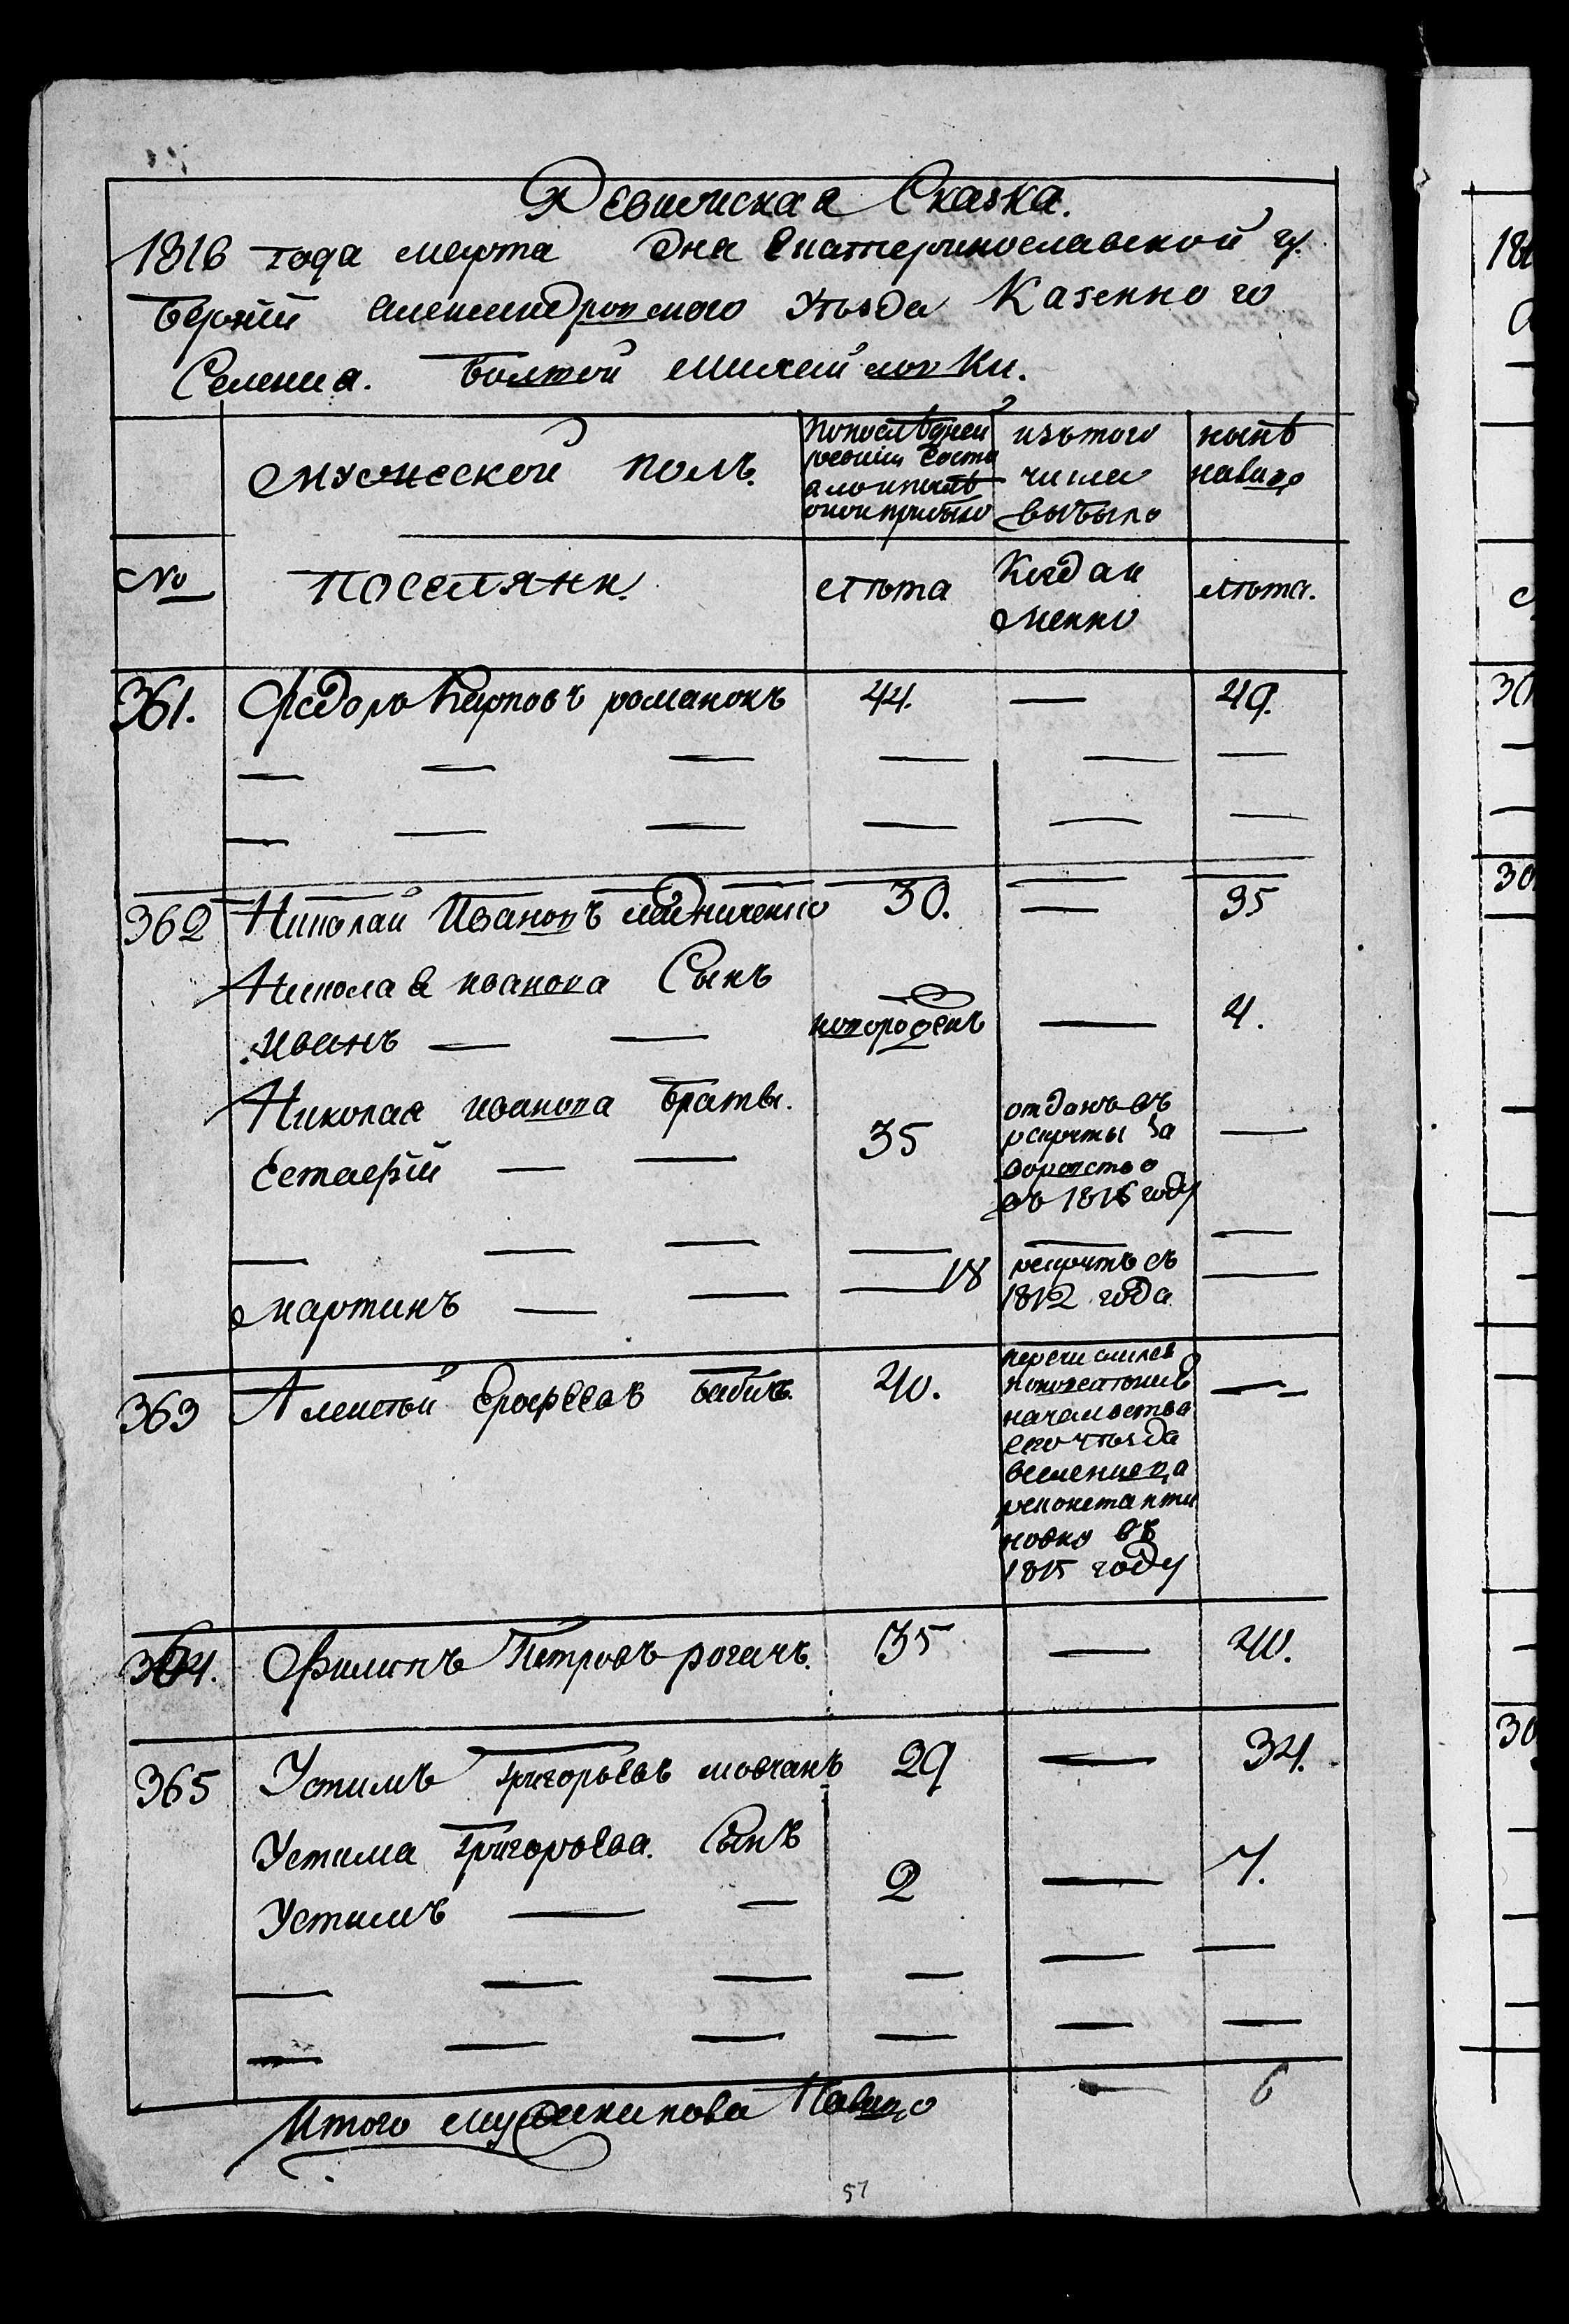 Ревижская Сказка.
1816 года марта дна Екатеринославской гу
берніи Александровского Уѣзда Казенного
Селения. Болшой Михайловки.
Мужеской полъ.
по последней
ревизіи состо
яло и послѣ
оной прибыло
изътого
числа
выбыло
нынѣ
налицо
№
поселянн.
лѣта
Когда и
менно
лѣта.
361. Федоръ Карповъ романокъ 44. — 49.
— — — — — —
— — — — — —
362 Николай Ивановъ 30. — 35
Николая иванова Сынъ
Иванъ — — новорожденъ — 4.
Николая иванова братья.
Евстафій — — 35 отданъ въ
рекруты за
воровство
въ 1816 году —
— — — — —
мартинъ — — — 18 рекрутъ съ
1812 года —
363 Алексѣй Ерофѣевъ бабикъ. 40. —
перечислился
начальства
его уѣзда
вселение
новку въ
1815 году
364. Филипъ Петровъ рогачъ. 35 — 40.
365 Устимъ Григорьевъ мовчанъ 29 — 34.
Устима Григорьева. Сынъ
Устимъ — — 2 — 7.
— — — — — —
— — — — — —
Итого мужескипола Налицо — 6
57